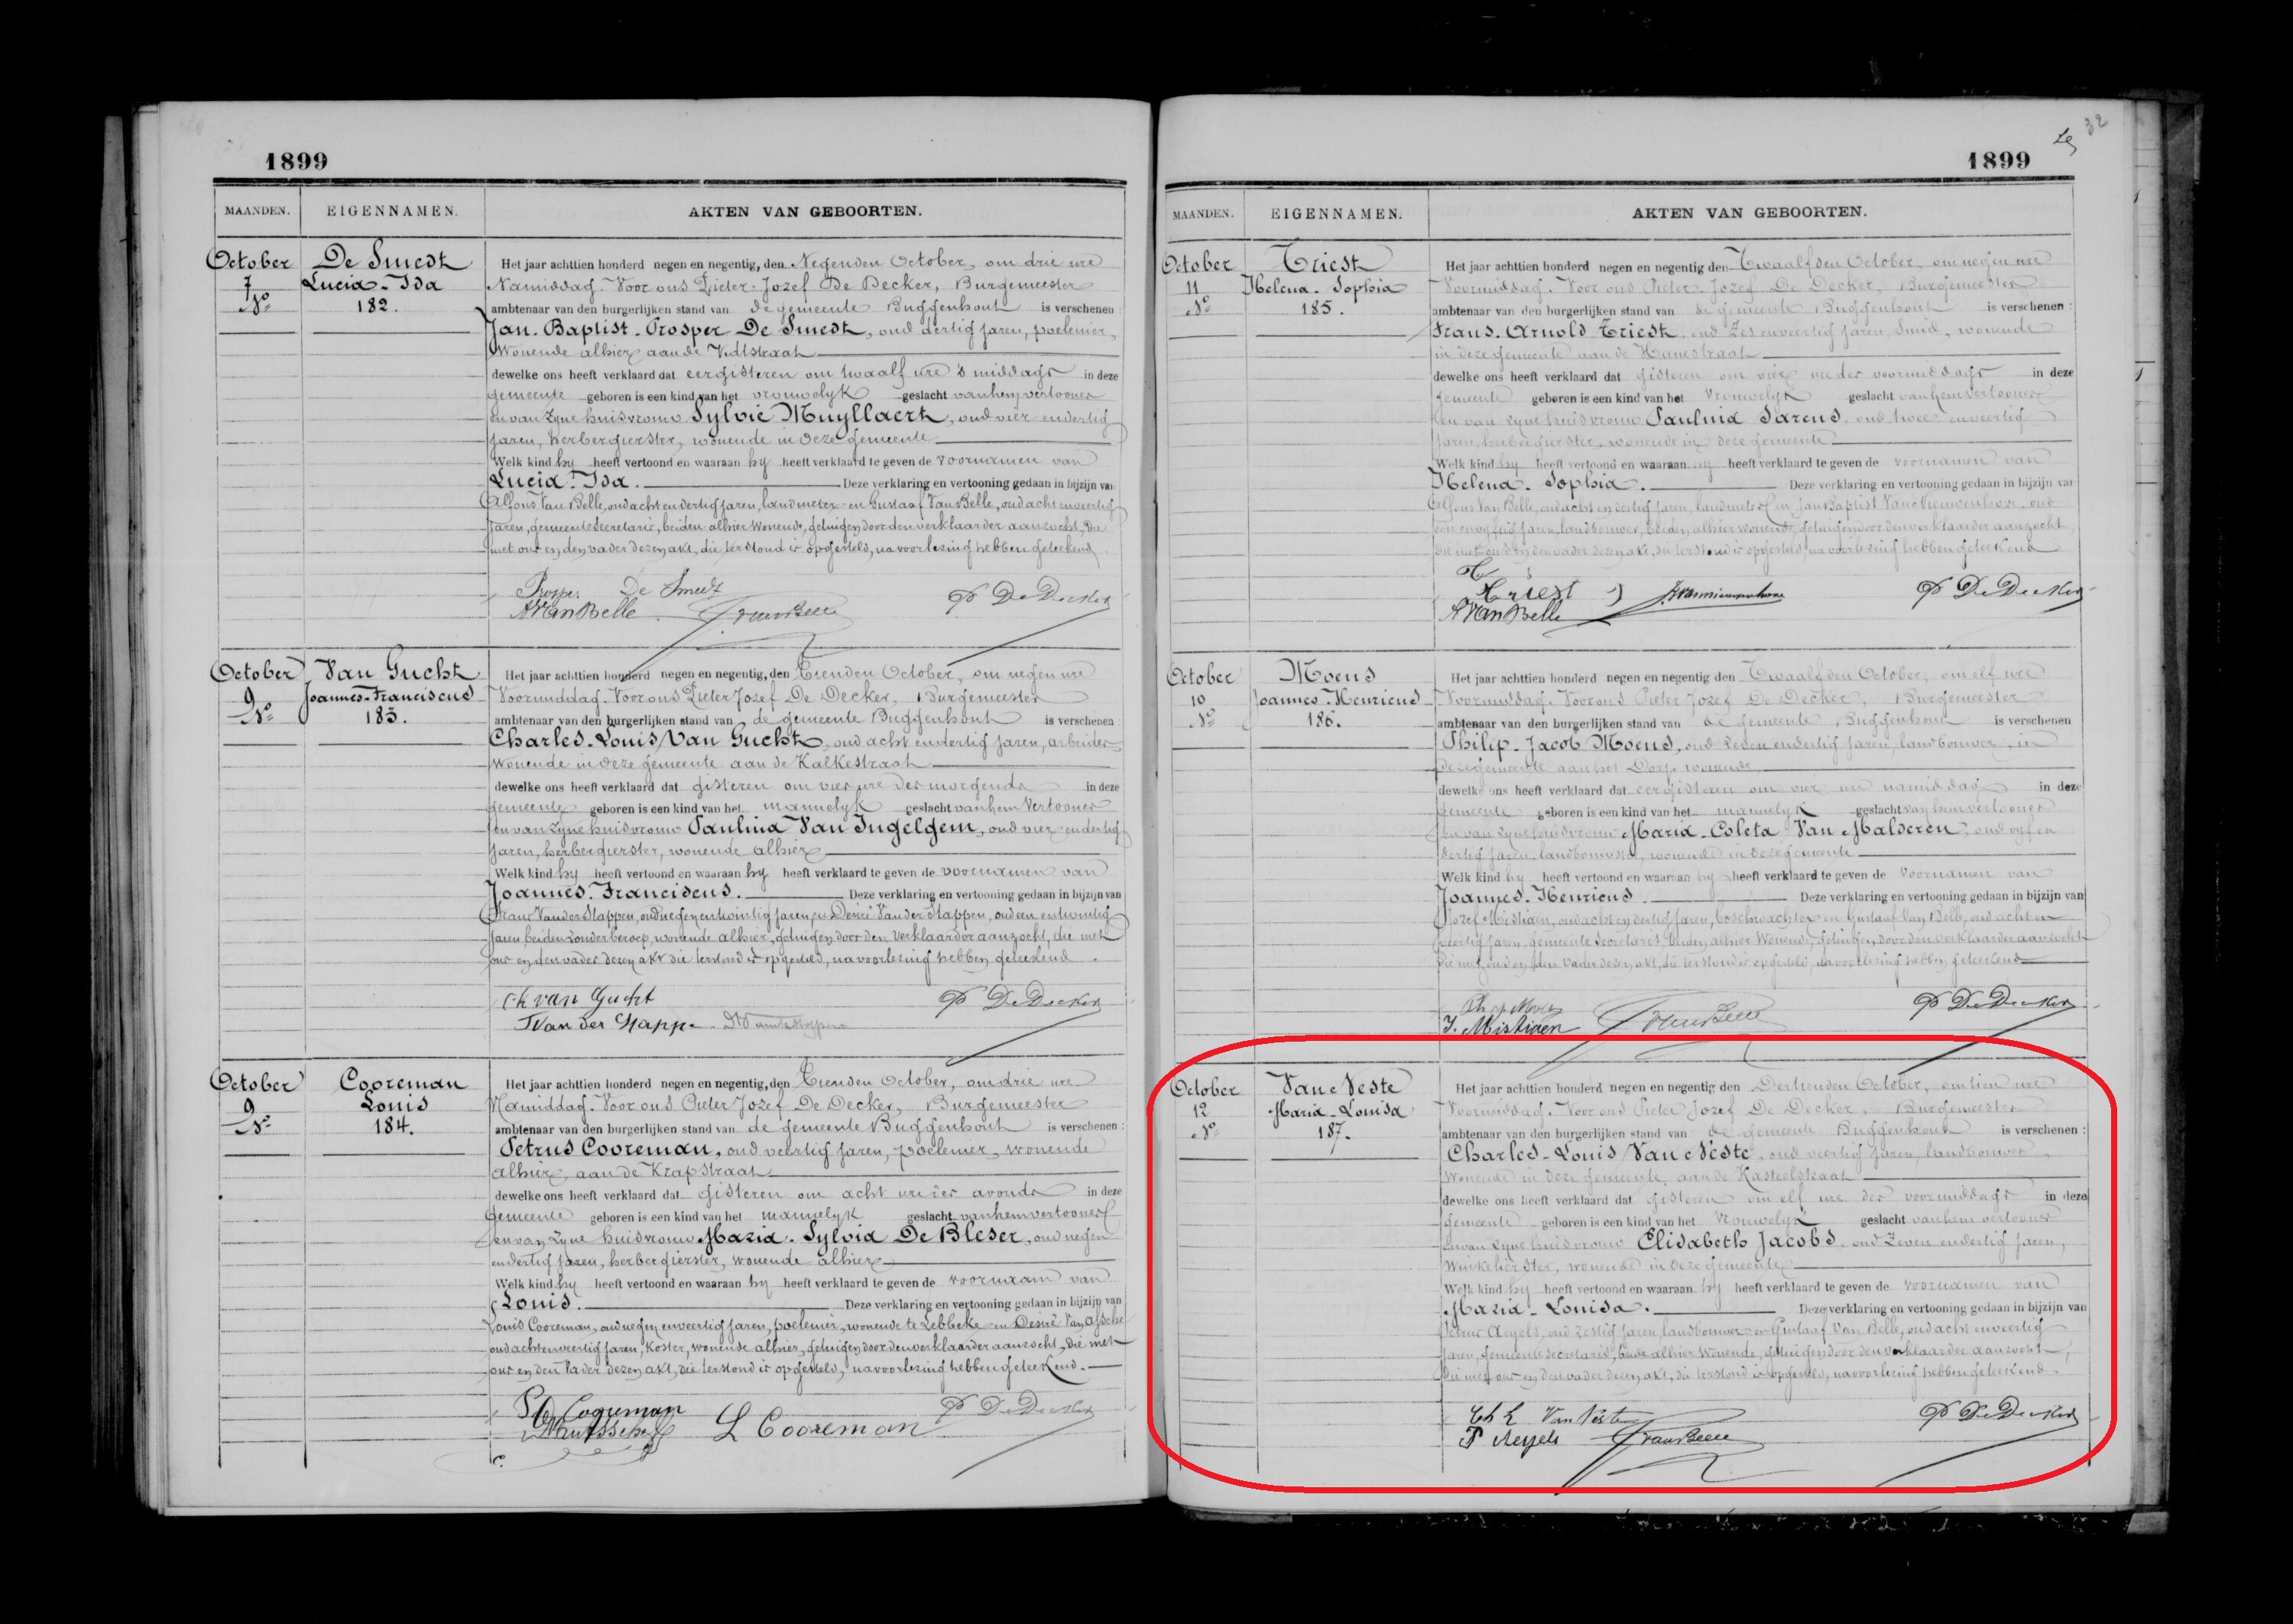 32
1899
MAANDEN. EIGENNAMEN. AKTEN VAN GEBOORTEN.
October De Smedt Het jaar achttien honderd negen en negentig, den Negenden October, om drie ure
7 Lucia-Ida Namiddag. Voor ons Pieter-Jozef De Decker, Burgemeester
No 182. ambtenaar van den burgerlijken stand van de gemeente Buggenhout is verschenen :
Jan-Baptist-Prosper De Smedt, oud dertig jaren, poelenier,
Wonende alhier aan de Vidtstraat
dewelke ons heeft verklaard dat eergisteren om twaalf ure 's middags in deze
gemeente geboren is een kind van het vrouwelyk geslacht van hem vertooner
en van zyne huisvrouw Sylvie Muyllaert, oud vier en dertig
jaren, herbergierster, wonende in deze gemeente
Welk kind hy heeft vertoond en waaraan hy heeft verklaard te geven de voornamen van
Lucia-Ida. Deze verklaring en vertooning gedaan in bijzijn van
Alfons Van Belle, oud acht en dertig jaren, landmeter en Gustaaf Van Belle, oud acht en veertig
jaren, gemeentesecretaris, beiden alhier wonende, getuigen door den verklaarder aanzocht, die
met ons en den vader dezen akt, die terstond is opgesteld, na voorlezing hebben geteekend
Prosper De Smedt P De Decker
A Van Belle G Van Belle
October Van Gucht Het jaar achttien honderd negen en negentig, den Tienden October, om negen ure
9 Joannes-Franciscus Voormiddag. Voor ons Pieter Jozef De Decker, Burgemeester
No 183. ambtenaar van den burgerlijken stand van de gemeente Buggenhout is verschenen :
Charles-Louis Van Gucht, oud acht en dertig jaren, arbeider,
Wonende in deze gemeente aan de Kalkestraat
dewelke ons heeft verklaard dat gisteren om vier ure des morgends in deze
gemeente geboren is een kind van het mannelyk geslacht van hem Vertooner
en van zyne huisvrouw Paulina Van Ingelgem, oud vier en dertig
jaren, herbergierster, wonende alhier
Welk kind hy heeft vertoond en waaraan hy heeft verklaard te geven de voornamen van
Joannes-Franciscus. Deze verklaring en vertooning gedaan in bijzijn van
Frans Van der Stappen, oud negen en twintig jaren en Desiré Van der Stappen, oud een en twintig
jaren, beiden zonder beroep, wonende alhier, getuigen door den verklaarder aanzocht, die met
ons en den vader dezen akt die terstond is opgesteld, na voorlezing hebben geteekend.
Ch van Gucht P De Decker
F Van der Stappe
October Cooreman Het jaar achttien honderd negen en negentig, den Tienden October, om drie ure
9 Louis Namiddag. Voor ons Pieter Jozef De Decker, Burgemeester
No 184. ambtenaar van den burgerlijken stand van de gemeente Buggenhout is verschenen :
Petrus Cooreman, oud veertig jaren, poelenier, wonende
alhier, aan de Krapstraat
dewelke ons heeft verklaard dat gisteren om acht ure des avonds in deze
gemeente geboren is een kind van het mannelyk geslacht van hem vertooner
en van zyne huisvrouw Maria-Sylvia De Bleser, oud negen
en dertig jaren, herbergierster, wonende alhier
Welk kind hy heeft vertoond en waaraan hy heeft verklaard te geven de voornaam van
Louis. Deze verklaring en vertooning gedaan in bijzijn van
Louis Cooreman, oud negen en veertig jaren, poelenier, wonende te Lebbeke en Desiré Van Assche
oud acht en veertig jaren, koster, wonende alhier, getuigen door den verklaarder aanzocht, die met
ons en den Vader dezen akt, die terstond is opgesteld, na voorlezing hebben geteekend.
P Cooreman P De Decker
L Cooreman
1899
MAANDEN. EIGENNAMEN. AKTEN VAN GEBOORTEN.
October Triest Het jaar achttien honderd negen en negentig den Twaalfden October, om negen ure
11 Helena-Sophia Voormiddag. Voor ons Pieter-Jozef De Decker, Burgemeester
No 185. ambtenaar van den burgerlijken stand van de gemeente Buggenhout is verschenen :
Frans-Arnold Triest, oud Zes en veertig jaren, Smid, wonende
in deze gemeente aan de
dewelke ons heeft verklaard dat gisteren om vier ure des voormiddags in deze
gemeente geboren is een kind van het Vrouwelyk geslacht van hem vertooner
en van zyne huisvrouw Paulina Sarens, oud twee en veertig
jaren, herbergierster, wonende in deze gemeente
Welk kind hy heeft vertoond en waaraan hy heeft verklaard te geven de voornamen van
Helena-Sophia. Deze verklaring en vertooning gedaan in bijzijn van
Alfons Van Belle, oud acht en dertig jaren, landmeter en Jan Baptist Van Nieuwenhove, oud
een en vyftig jaren, landbouwer, beiden, alhier wonende, getuigen door den verklaarder aanzocht,
die met ons en den vader dezen akt, die terstond is opgesteld, na voorlezing hebben geteekend
Triest P De Decker
A Van Belle
October Moens Het jaar achttien honderd negen en negentig den Twaalfden October, om elf ure
10 Joannes-Henricus Voormiddag. Voor ons Pieter Jozef De Decker, Burgemeester
No 186. ambtenaar van den burgerlijken stand van de gemeente Buggenhout is verschenen
Philip-Jacob Moens, oud zeven en dertig jaren landbouwer, in
deze gemeente aan het Dorp wonende
dewelke ons heeft verklaard dat eergisteren om vier ure namiddag in deze
gemeente geboren is een kind van het mannelyk geslacht van hem vertooner
en van zyne huisvrouw Maria-Coleta Van Malderen, oud vyf en
dertig jaren, landbouwster, wonende in deze gemeente
Welk kind hy heeft vertoond en waaraan hy heeft verklaard te geven de voornamen van
Joannes-Henricus. Deze verklaring en vertooning gedaan in bijzijn van
Jozef Mistiaen, oud acht en dertig jaren, boschwachter en Gustaaf Van Belle, oud acht en
veertig jaren, gemeente secretaris, beiden, alhier wonende, getuigen, door den verklaarder aanzocht
die met ons en den Vader dezen akt, die terstond is opgesteld, na voorlezing hebben geteekend
Ph J Moens P De Decker
J. Mistiaen G Van Belle
October Van Neste Het jaar achttien honderd negen en negentig den Dertienden October, om tien ure
12 Maria-Louisa Voormiddag. Voor ons Pieter Jozef De Decker, Burgemeester
No 187. ambtenaar van den burgerlijken stand van de gemeente Buggenhout is verschenen :
Charles-Louis Van Neste, oud veertig jaren, landbouwer,
Wonende in deze gemeente aan de Kasteelstraat
dewelke ons heeft verklaard dat gisteren om elf ure des voormiddags in deze
gemeente geboren is een kind van het Vrouwelyk geslacht van hem vertooner
en van zyne huisvrouw Elisabeth Jacobs, oud Zeven en dertig jaren,
Winkelierster, wonende in deze gemeente
Welk kind hy heeft vertoond en waaraan hy heeft verklaard te geven de voornamen van
Maria-Louisa. Deze verklaring en vertooning gedaan in bijzijn van
Petrus Aeyels, oud zestig jaren, landbouwer en Gustaaf Van Belle, oud acht en veertig
jaren, gemeentesecretaris, beide alhier wonende, getuigen door den verklaarder aanzocht,
die met ons en den vader dezen akt, die terstond is opgesteld, na voorlezing hebben geteekend.
Ch L Van Neste P De Decker
P Aeyels G Van Belle